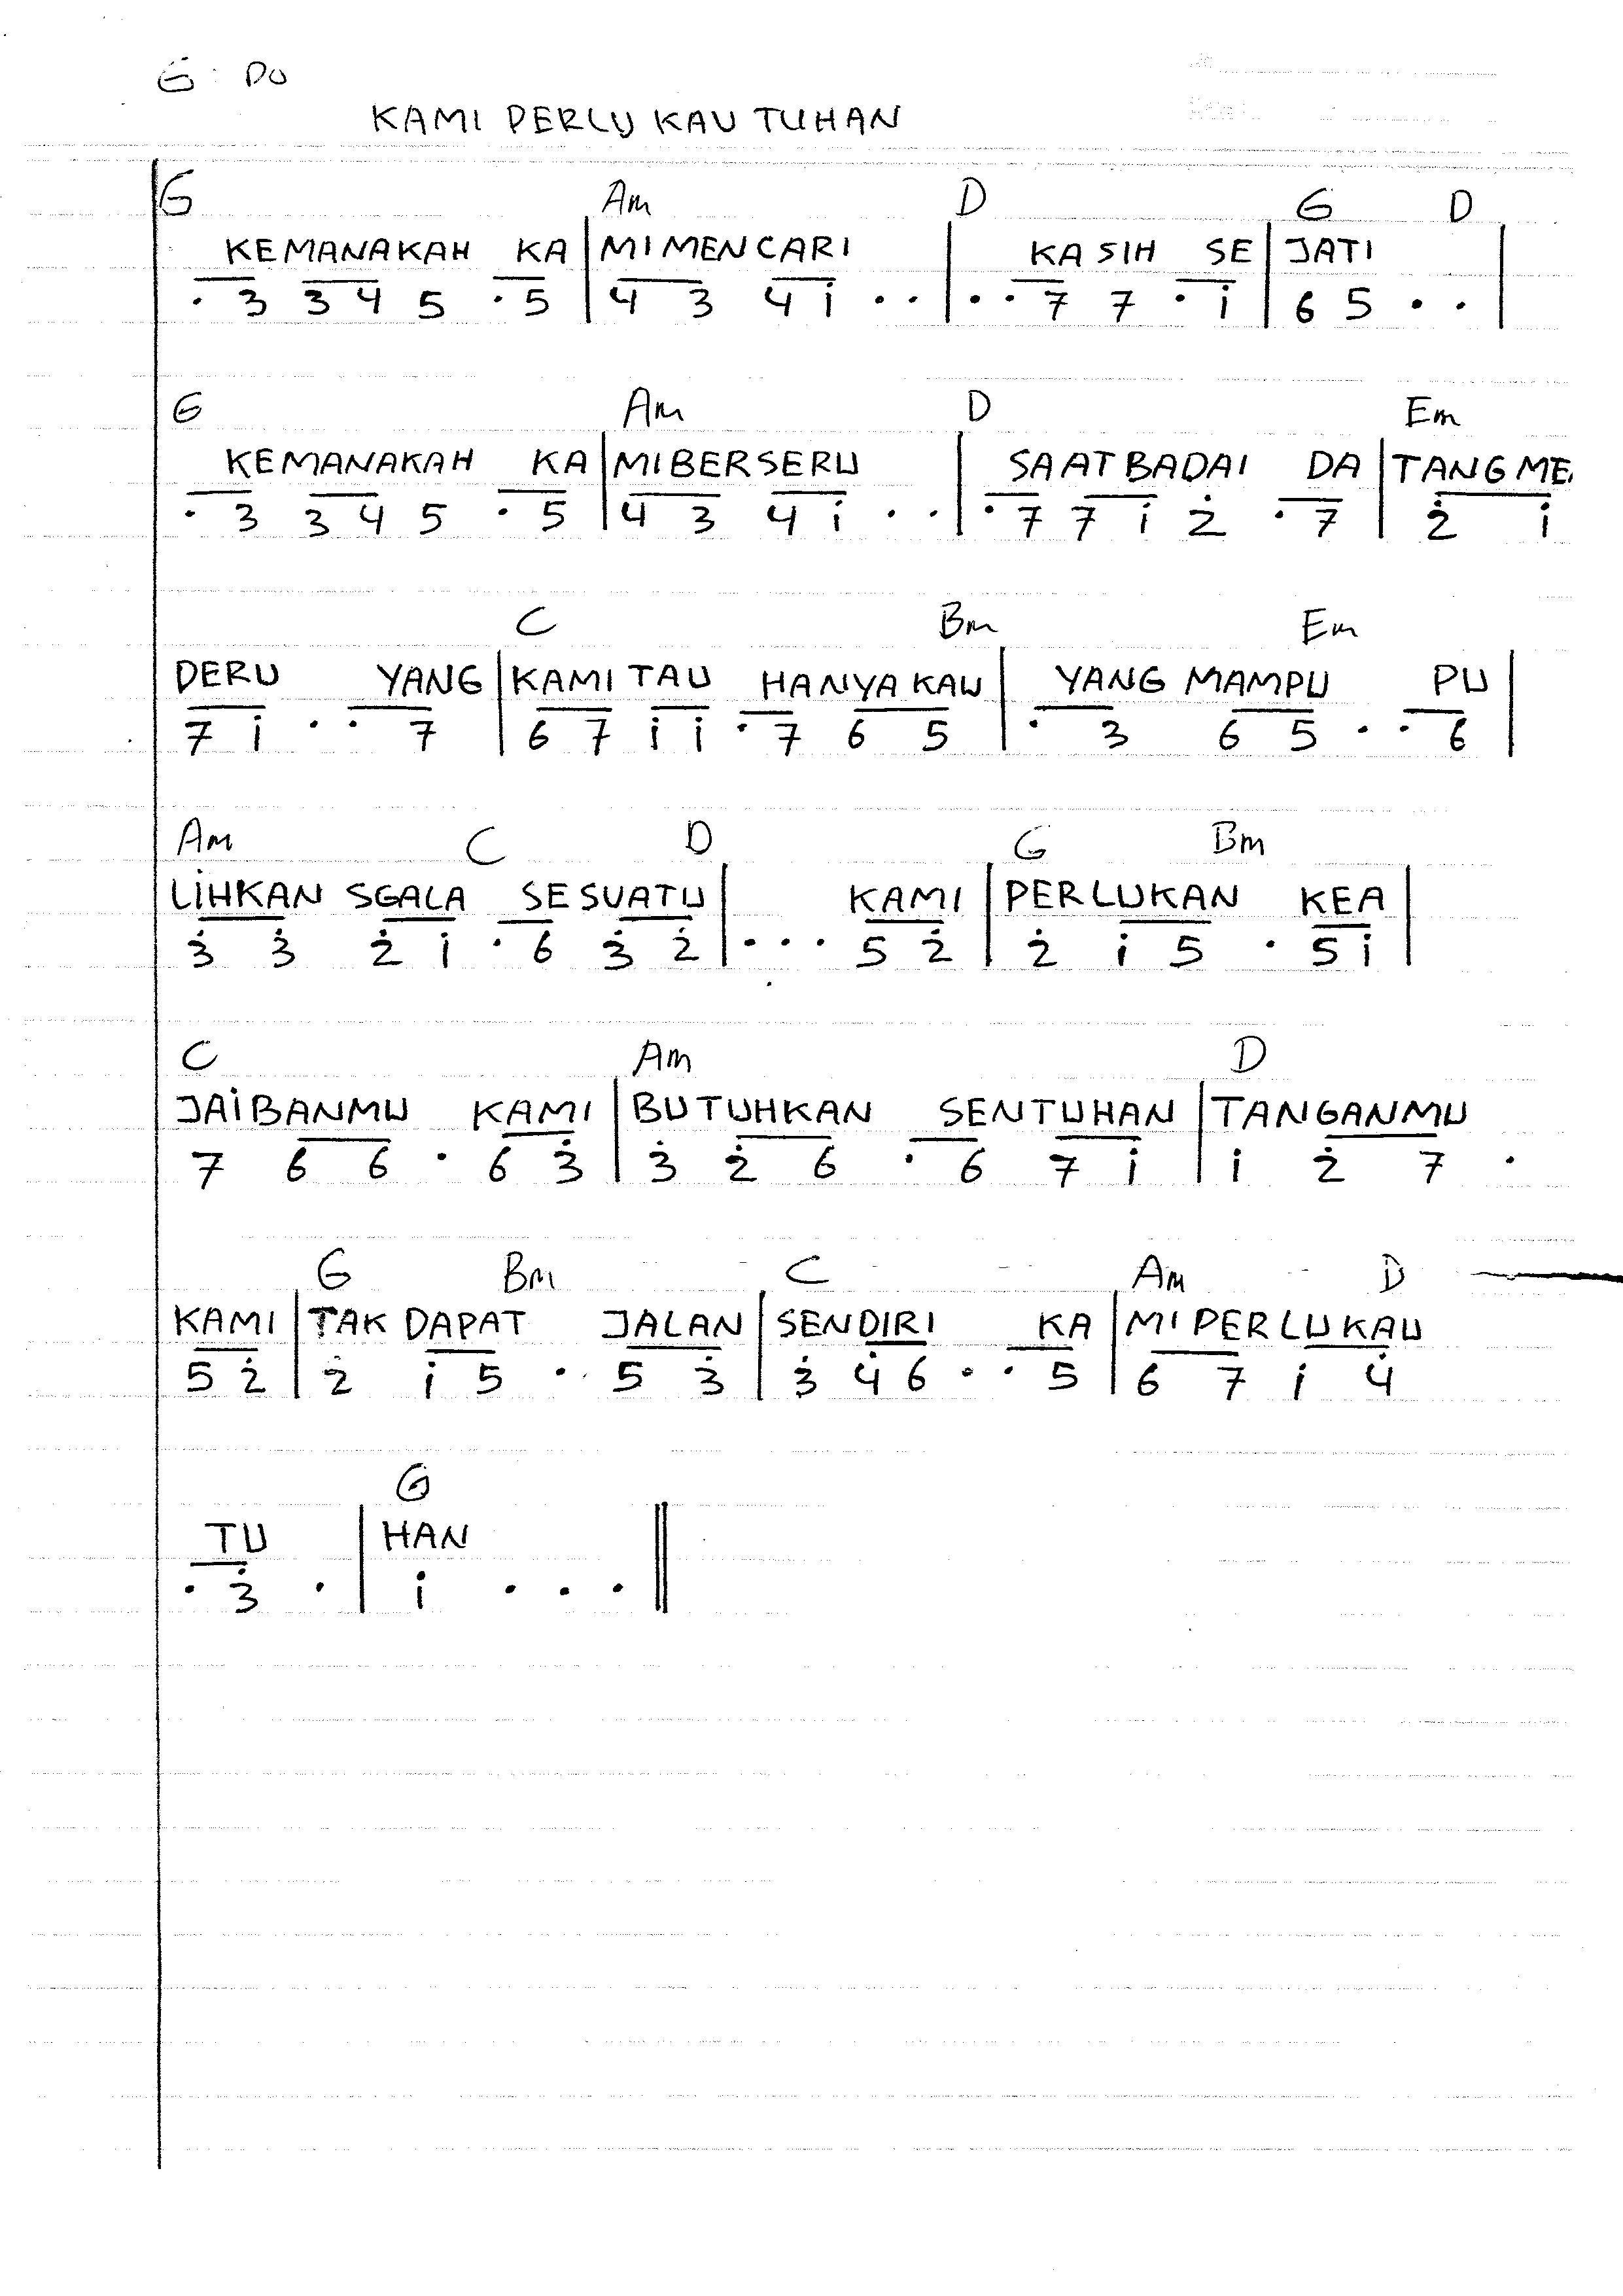 G : DO
KAMI PERLU KAU TUHAN
G Am D G D
KEMANAKAH KA | MI MENCARI | KASIH SE | JATI |
. 3 3 4 5 . 5 | 4 3 4 i . . | . . 7 7 . i | 6 5 . . |
G Am D Em
KEMANAKAH KA | MI BERSERU | SAAT BADAI DA | TANG ME
. 3 3 4 5 . 5 | 4 3 4 i . . | . 7 7 i 2̇ . 7 | 2̇ i
C Bm Em
DERU YANG | KAMI TAU HANYA KAU | YANG MAMPU PU |
7 i . . 7 | 6 7 i i . 7 6 5 | . 3 6 5 . . 6 |
Am C D G Bm
LIHKAN SGALA SESUATU | KAMI | PERLUKAN KEA |
3̇ 3̇ 2̇ i . 6 3̇ 2̇ | . . . 5 2̇ | 2̇ i 5 . 5 i |
C Am D
JAIBANMU KAMI | BUTUHKAN SENTUHAN | TANGANMU
7 6 6 . 6 3̇ | 3̇ 2̇ 6 . 6 7 i | i 2̇ 7 .
G Bm C Am D
KAMI | TAK DAPAT JALAN | SENDIRI KA | MI PERLU KAU
5 2̇ | 2̇ i 5 . 5 3̇ | 3̇ 4̇ 6 . . 5 | 6 7 i 4̇
G
TU | HAN
. 3̇ . | i . . . ||